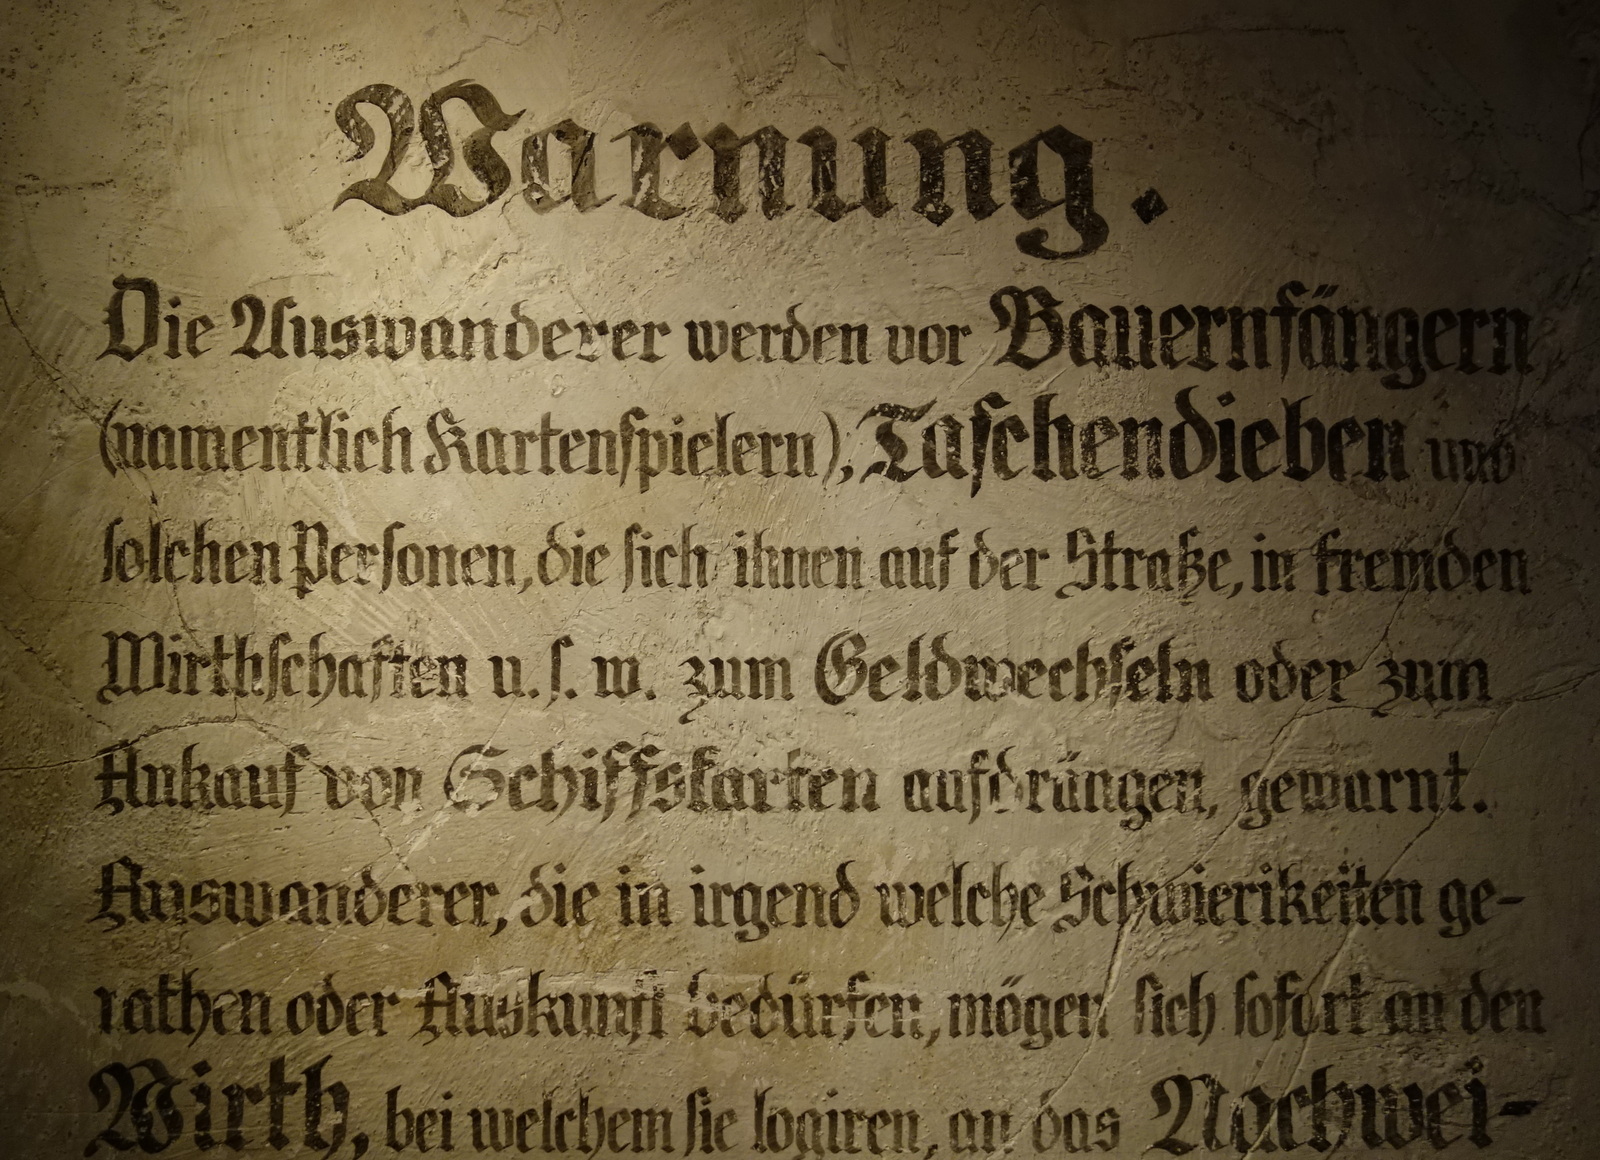 Warnung.
Die Auswanderer werden vor Bauernfängern
(namentlich Kartenspielern), Taschendieben und
solchen Personen, die sich ihnen auf der Straße, in fremden
Wirthschaften u. s. w. zum Geldwechseln oder zum
Ankauf von Schiffskarten aufdrängen, gewarnt.
Auswanderer, die in irgend welche Schwierikeiten ge-
rathen oder Auskunft bedürfen, mögen sich sofort an den
Wirth, bei welchem sie logiren, an das Nachwei-